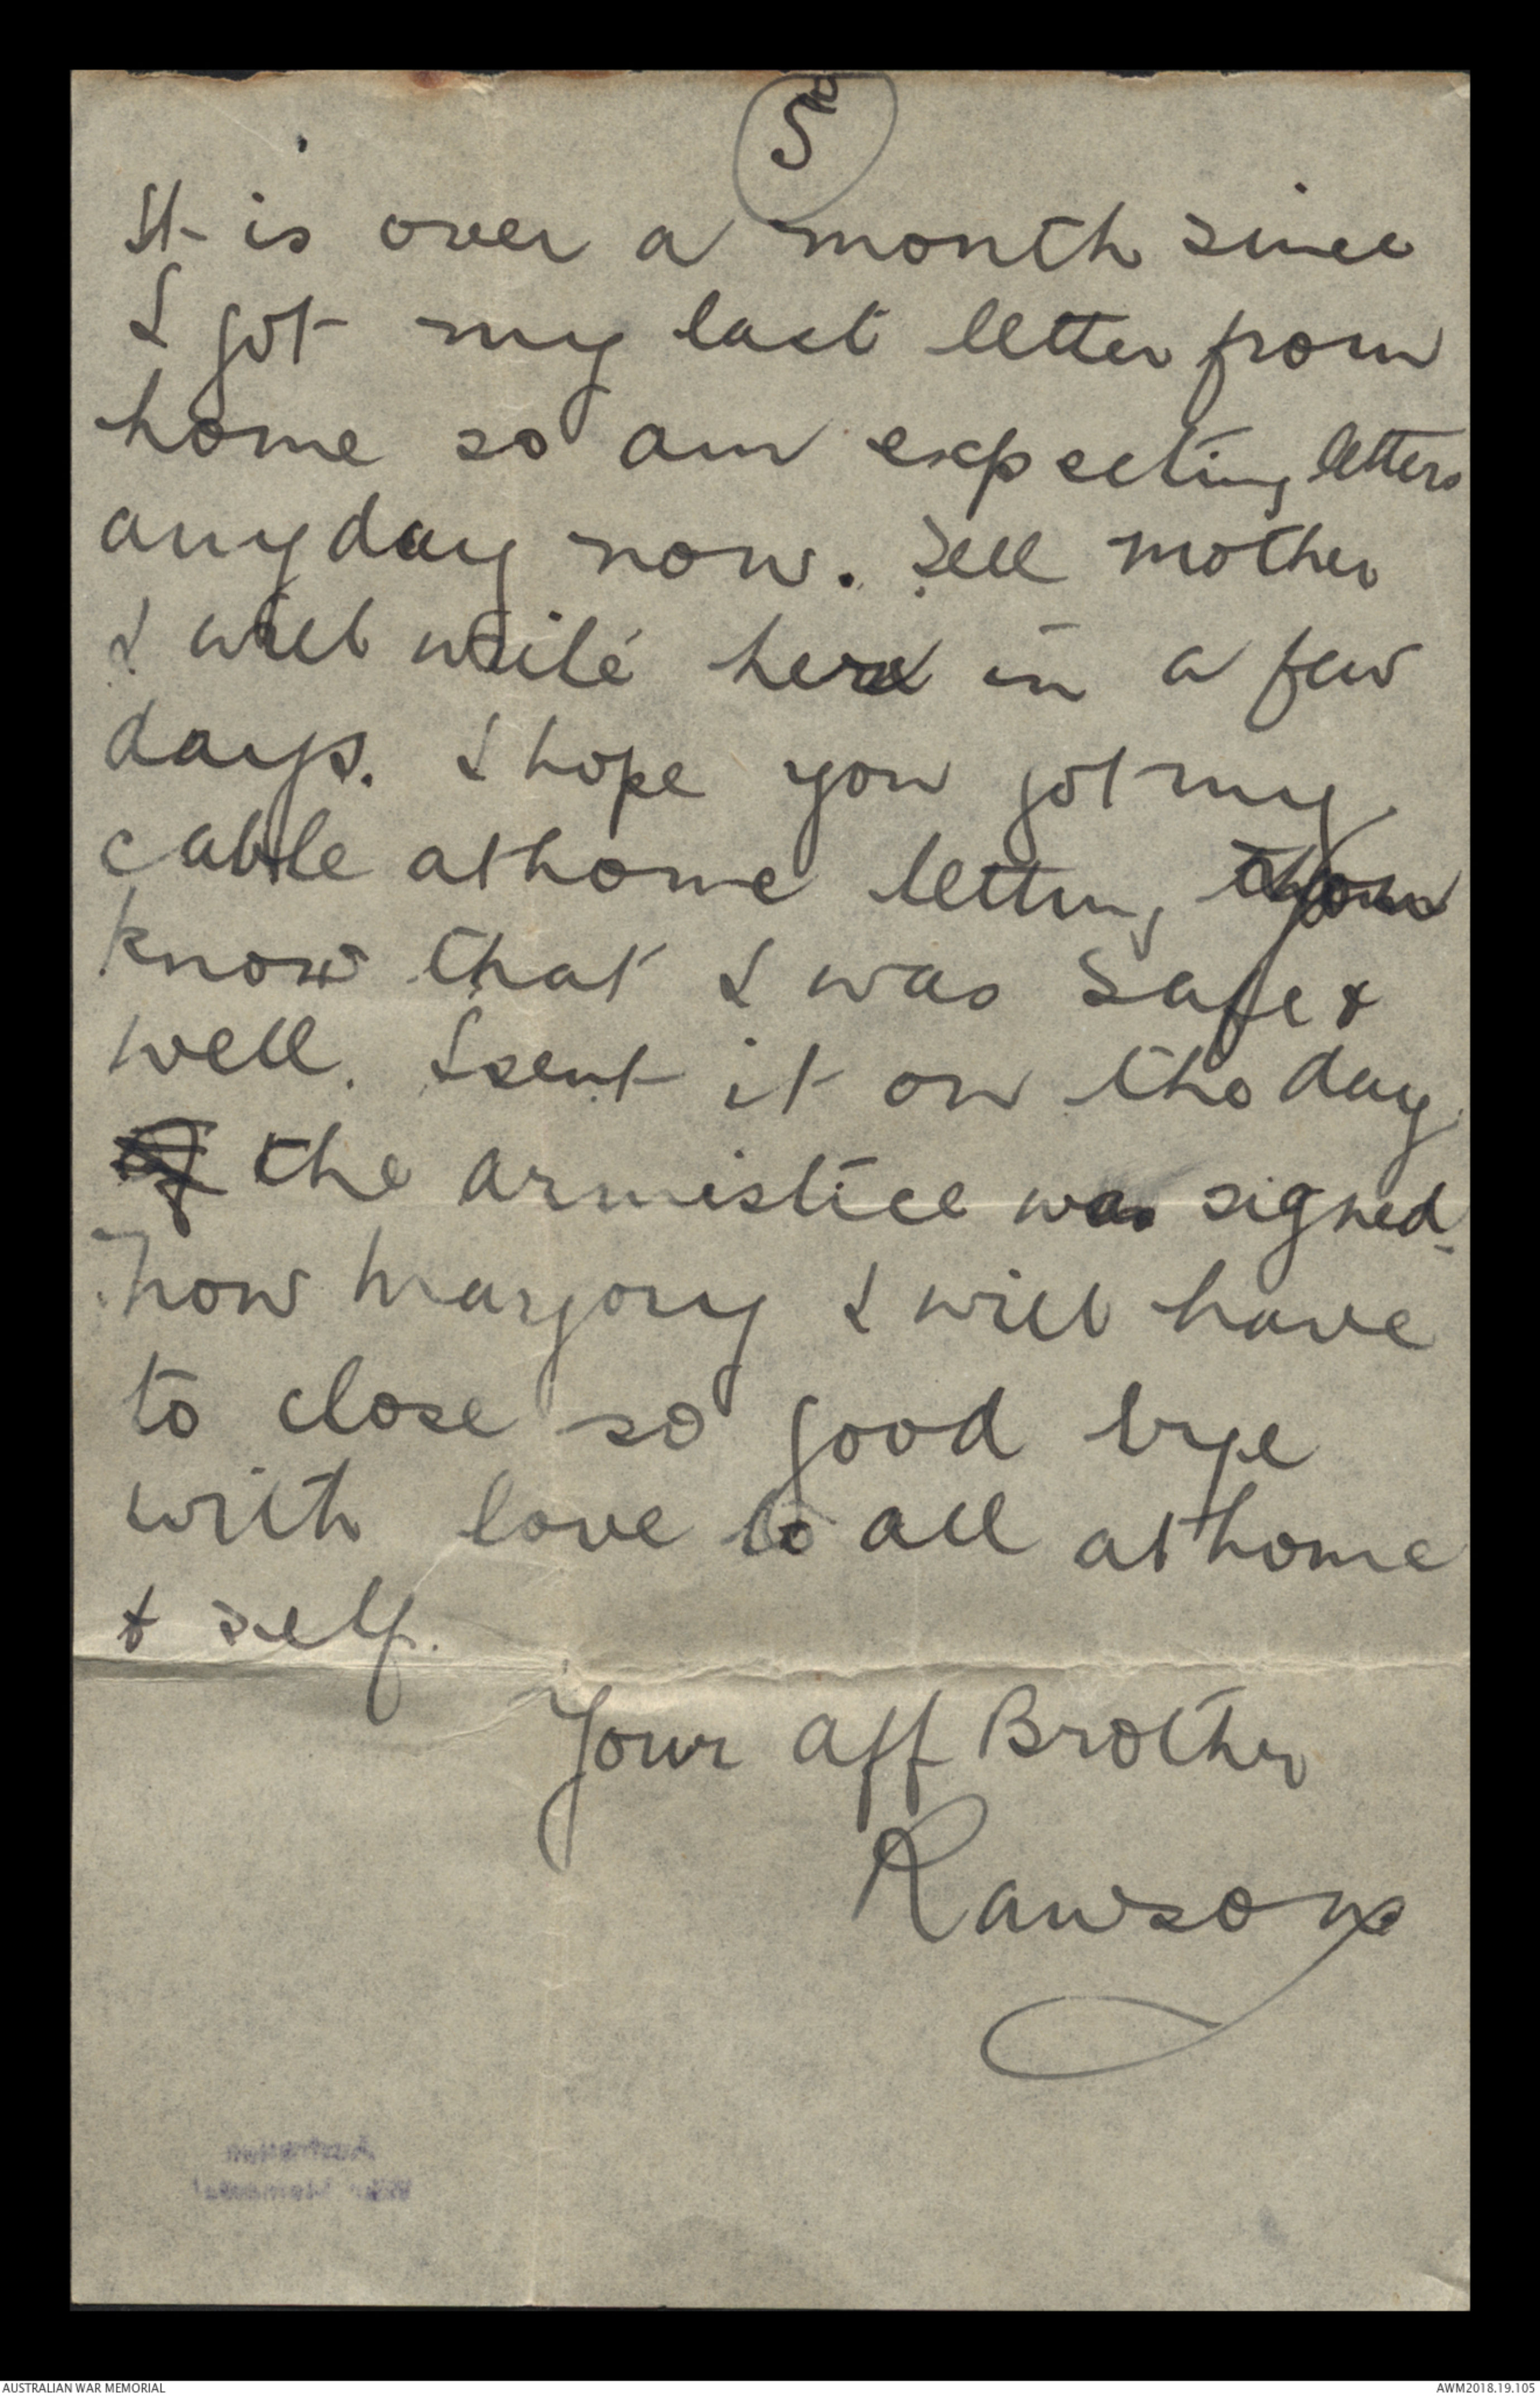 5
It is over a month since
I got my last letter from
home so am expecting letters
anyday now. Tell mother
I will write her in a few
days. I hope you got my
cable at home letting
know that I was safe &
well. I sent it on the day
the armistice was signed.
Now Marjory I will have
to close so good bye
with love to all at home
& self.
Your aff Brother
Rawson
AUSTRALIAN WAR MEMORIAL
AWM2018.19.105